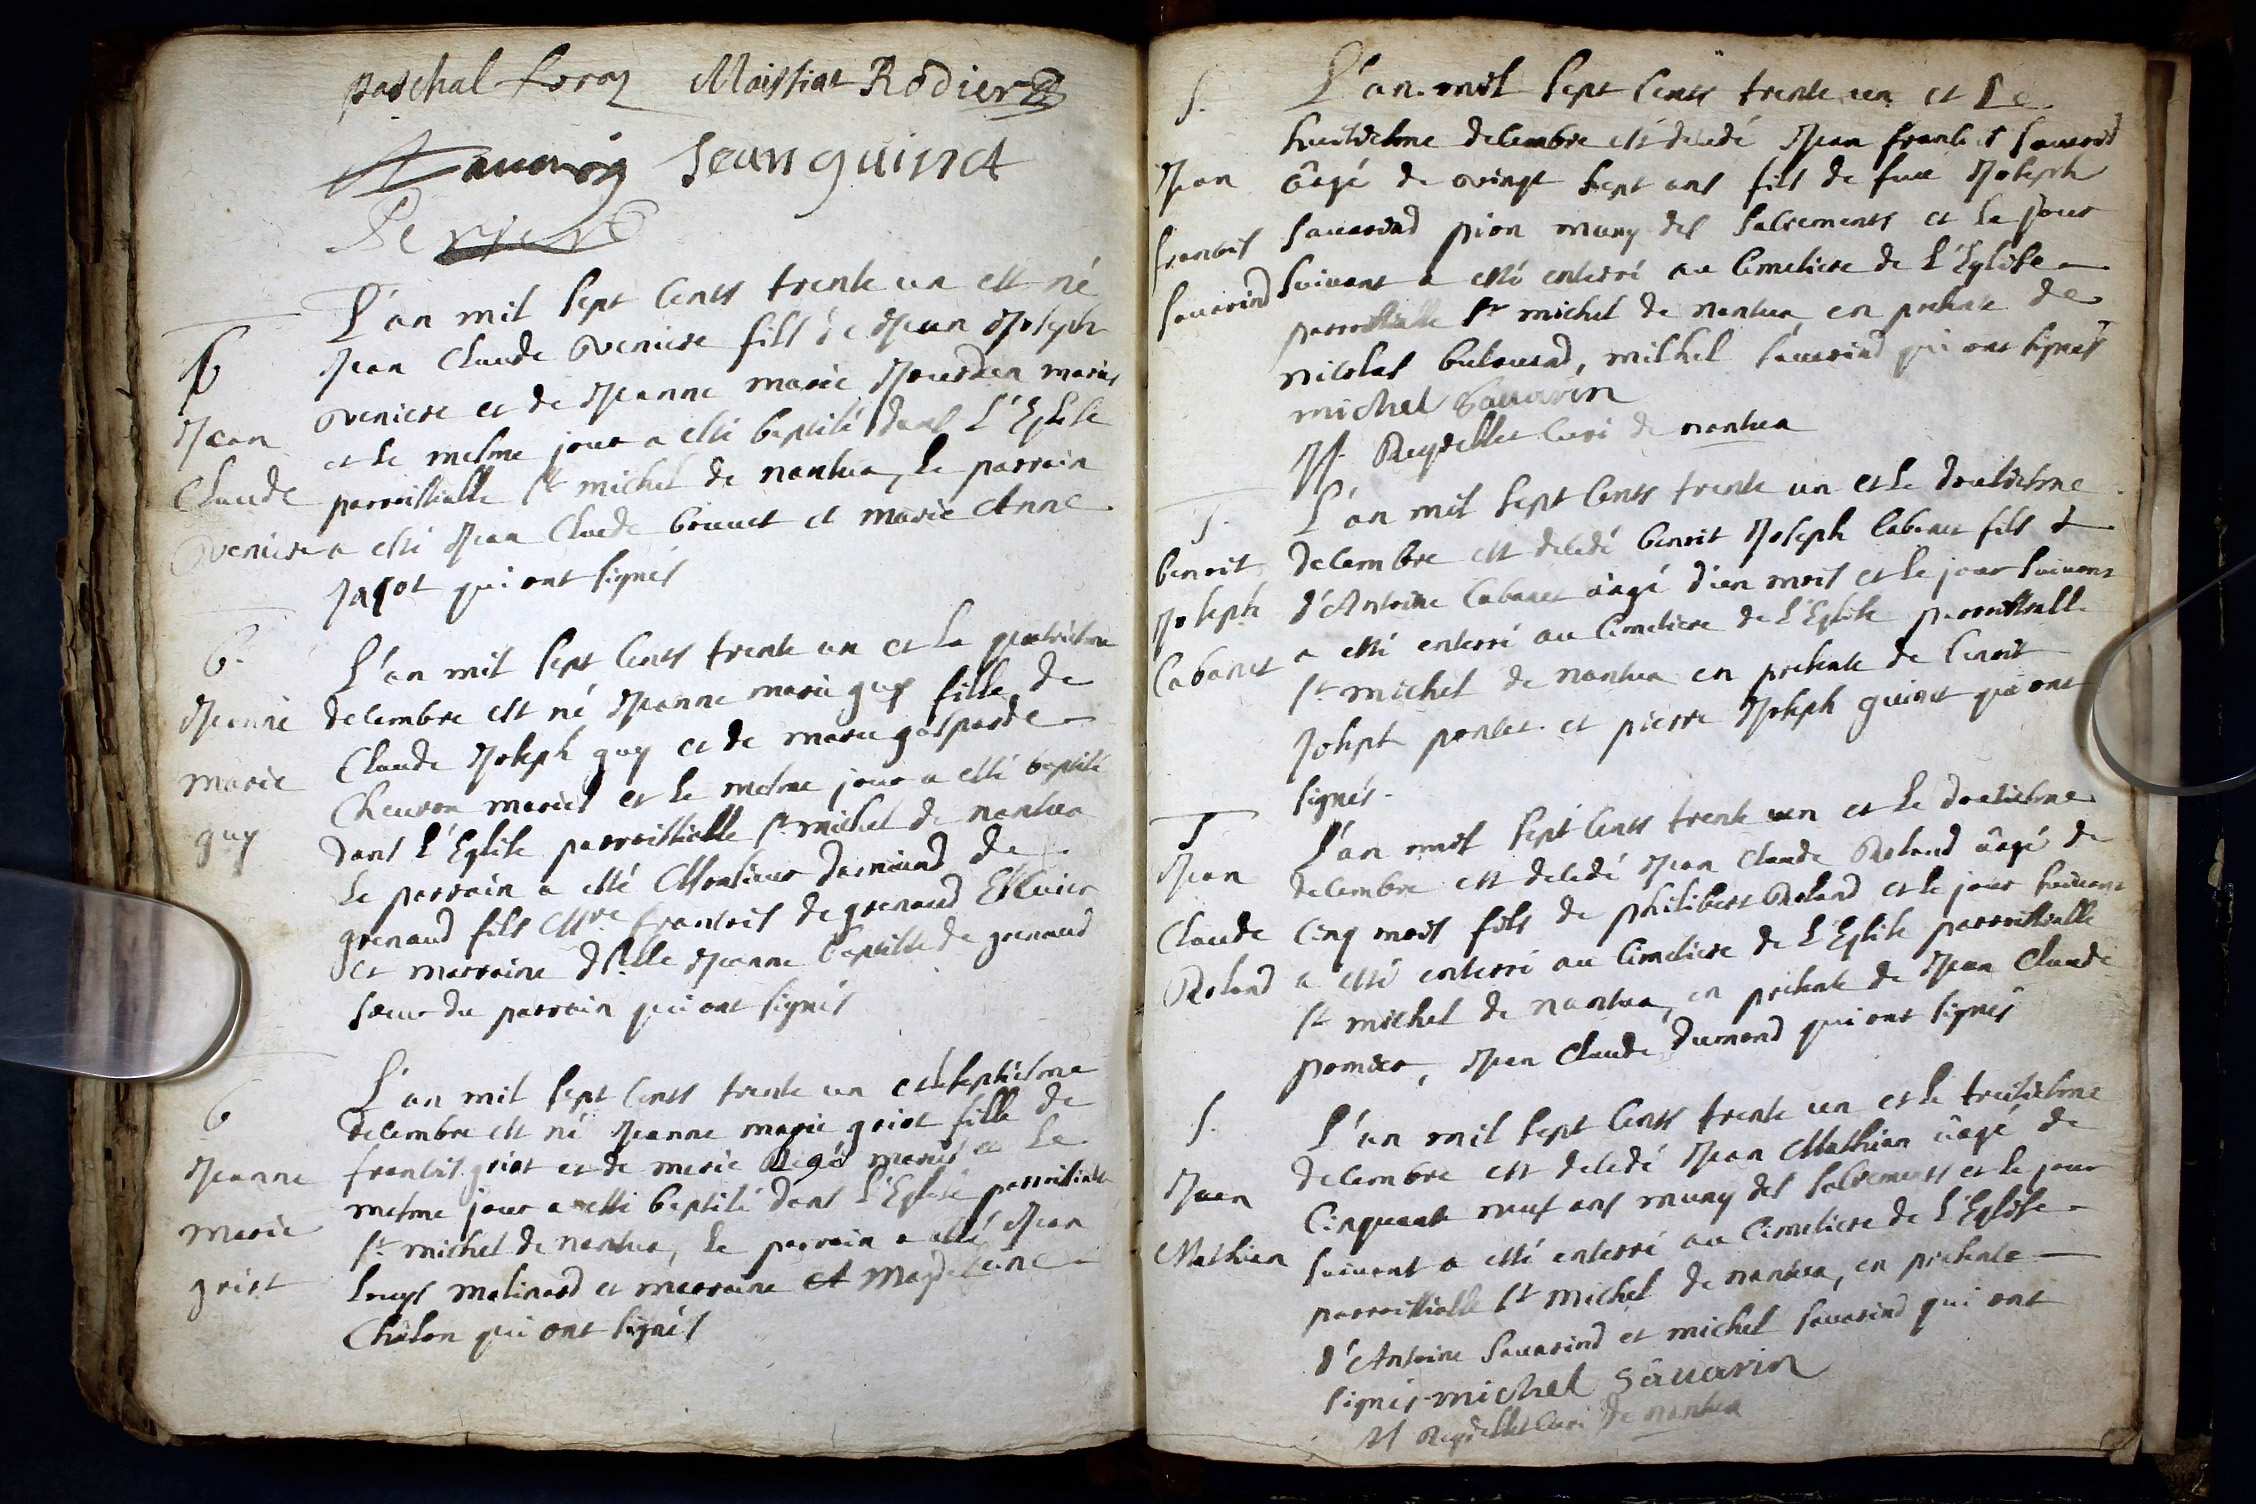 paschal Moissiat Rodier
Sauarin Jean guinet
Perrier
L'an mil sept cents trente un est né
b
Jean Claude Veniere fils de Jean Joseph
Veniere et de Jeanne marie Jourdan mariés
Jean
et le mesme jour a esté baptisé dans l'Eglise
Claude
parroissialle st michel de nantua, le parrain
Veniere
a esté Jean Claude bouuet et marie Anne
Jagot qui ont signés
b.
L'an mil sept cents trente un et la
Jeanne
decembre est né Jeanne marie guy fille de
Claude Joseph guy et de marie gasparde
marie
Cheuron mariés et le mesme jour a esté baptisé
guy
dans l'Eglise parroissialle st michel de nantua
Le parrain a esté Monsieur de
grenaud fils Mre francois de grenaud Escuier
et marraine dslle Jeanne baptiste de grenaud
soeur du parrain qui ont signés
b
L'an mil sept cents trente un et le septiesme
decembre est né Jeanne marie griot fille de
Jeanne
francois griot et de marie mariés et le
marie
mesme jour a esté baptisé dans l'Eglise parroissialle
st michel de nantua, le parrain a esté Jean
griot
Louys molinard et marraine et Magdeleine
Chalon qui ont signés
S.
L'an mil sept cents trente un et le
huictiesme decembre est decedé Jean francois sauarind
Jean
âagé de vingt sept ans fils de feu Joseph
francois
sauarind pion muny des sacrements et le jour
sauarind
suivant a esté enterré au cimetiere de l'Eglise
parroissialle st michel de nantua en presence de
nicolas, michel sauarind qui ont signés
michel sauarin
M. Reydellet Curé de nantua
S.
L'an mil sept cents trente un et le douziesme
benoit
decembre est decedé benoit Joseph Cabanet fils
Joseph
d'Antoine Cabanet âagé d'un mois et le jour suivant
Cabanet
a esté enterré au cimetiere de l'Eglise parroissialle
st michel de nantua en presence de benoit
Joseph poncet et pierre Joseph guinet qui ont
signés.
S
L'an mil sept cents trente un et le douziesme
Jean
decembre est decedé Jean Claude Roland âagé de
Claude
cinq mois fils de philibert Roland et le jour suivant
Roland
a esté enterré au cimetiere de l'Eglise parroissialle
st michel de nantua, en presence de Jean Claude
pomier, Jean Claude Dumond qui ont signés
S.
L'an mil sept cents trente un et le treiziesme
decembre est decedé Jean Mathian âagé de
Jean
cinquante neuf ans muny des sacrements et le jour
Mathian
suivant a esté enterré au cimetiere de l'Eglise
parroissialle st michel de nantua, en presence
d'Antoine sauarind et michel sauarind qui ont
signés michel sauarin
M Reydellet Curé de nantua